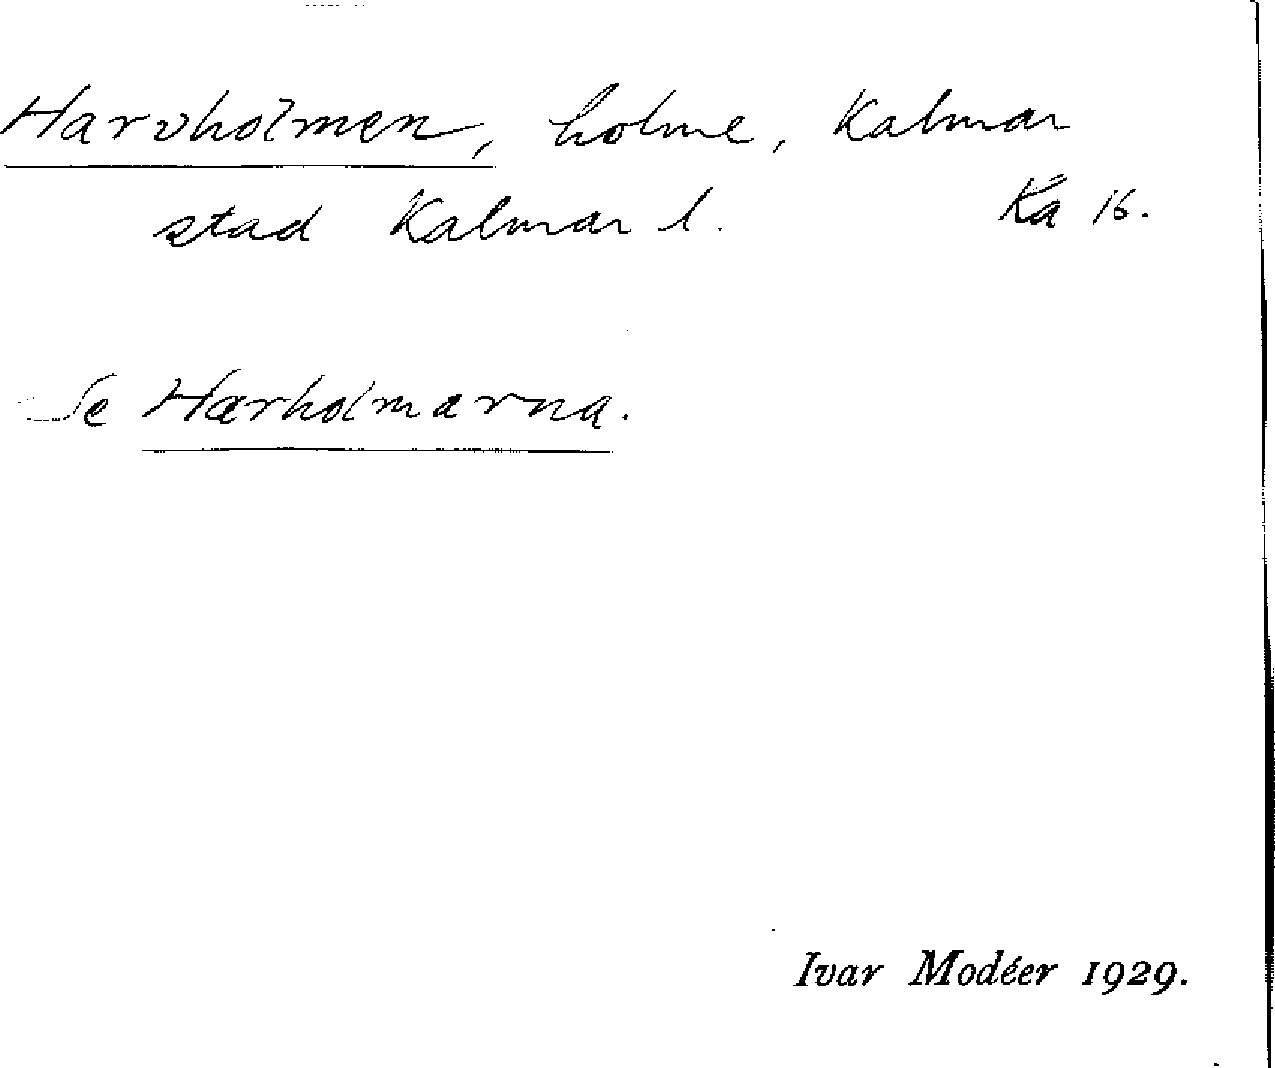 Harvholmen, holme, Kalmar
stad Kalmar l. Ka 16.
Se Harholmarna.
Ivar Modéer 1929.